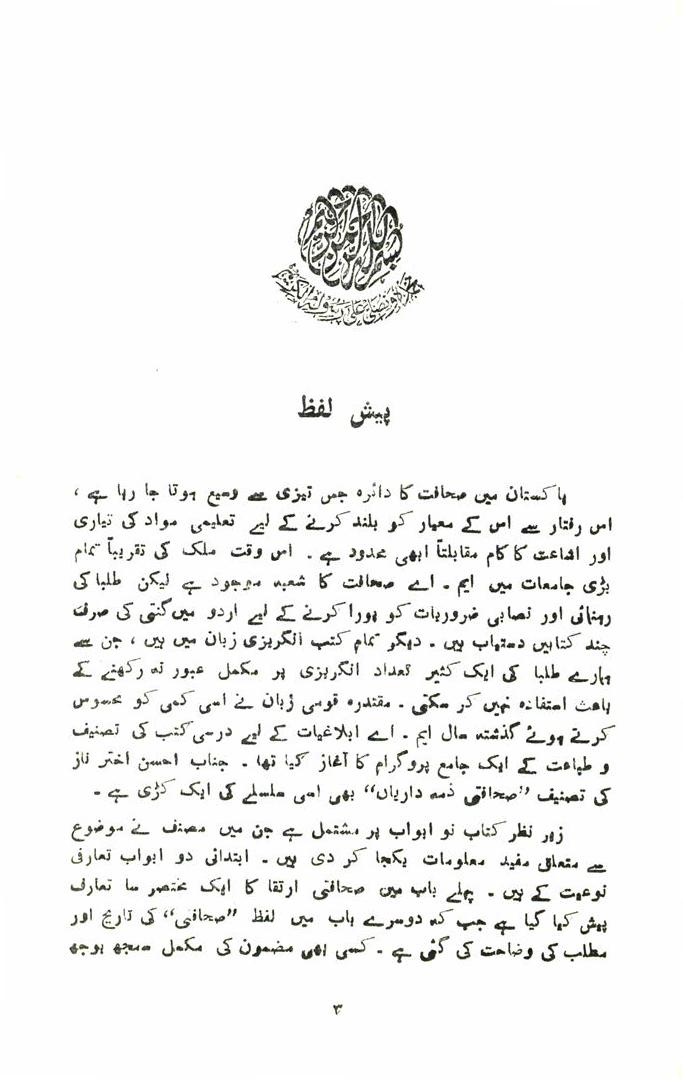 بسم اللہ الرحمن الرحیم
نحمدہ و نصلی علی رسولہ الکریم
پیش لفظ
پاکستان میں صحافت کا دائرہ جس تیزی سے وسیع ہوتا جا رہا ہے ،
اس رفتار سے اس کے معیار کو بلند کرنے کے لیے تعلیمی مواد کی تیاری
اور اشاعت کا کام مقابلتاً ابھی محدود ہے ۔ اس وقت ملک کی تقریباً تمام
بڑی جامعات میں ایم ۔ اے صحافت کا شعبہ موجود ہے لیکن طلبا کی
رہنمائی اور نصابی ضروریات کو پورا کرنے کے لیے اردو میں گنتی کی صرف
چند کتابیں دستیاب ہیں ۔ دیگر تمام کتب انگریزی زبان میں ہیں ، جن سے
ہمارے طلبا کی ایک کثیر تعداد انگریزی پر مکمل عبور نہ رکھنے کے
باعث استفادہ نہیں کر سکتی ۔ مقتدرہ قومی زبان نے اسی کمی کو محسوس
کرتے ہوئے گذشتہ سال ایم ۔ اے ابلاغیات کے لیے درسی کتب کی تصنیف
و طباعت کے ایک جامع پروگرام کا آغاز کیا تھا ۔ جناب احسن اختر ناز
کی تصنیف ”صحافتی ذمہ داریاں“ بھی اسی سلسلے کی ایک کڑی ہے ۔
زیر نظر کتاب نو ابواب پر مشتمل ہے جن میں مصنف نے موضوع
سے متعلق مفید معلومات یکجا کر دی ہیں ۔ ابتدائی دو ابواب تعارفی
نوعیت کے ہیں ۔ پہلے باب میں صحافتی ارتقا کا ایک مختصر سا تعارف
پیش کیا گیا ہے جب کہ دوسرے باب میں لفظ ”صحافتی“ کی تاریخ اور
مطلب کی وضاحت کی گئی ہے ۔ کسی بھی مضمون کی مکمل سمجھ بوجھ
۳